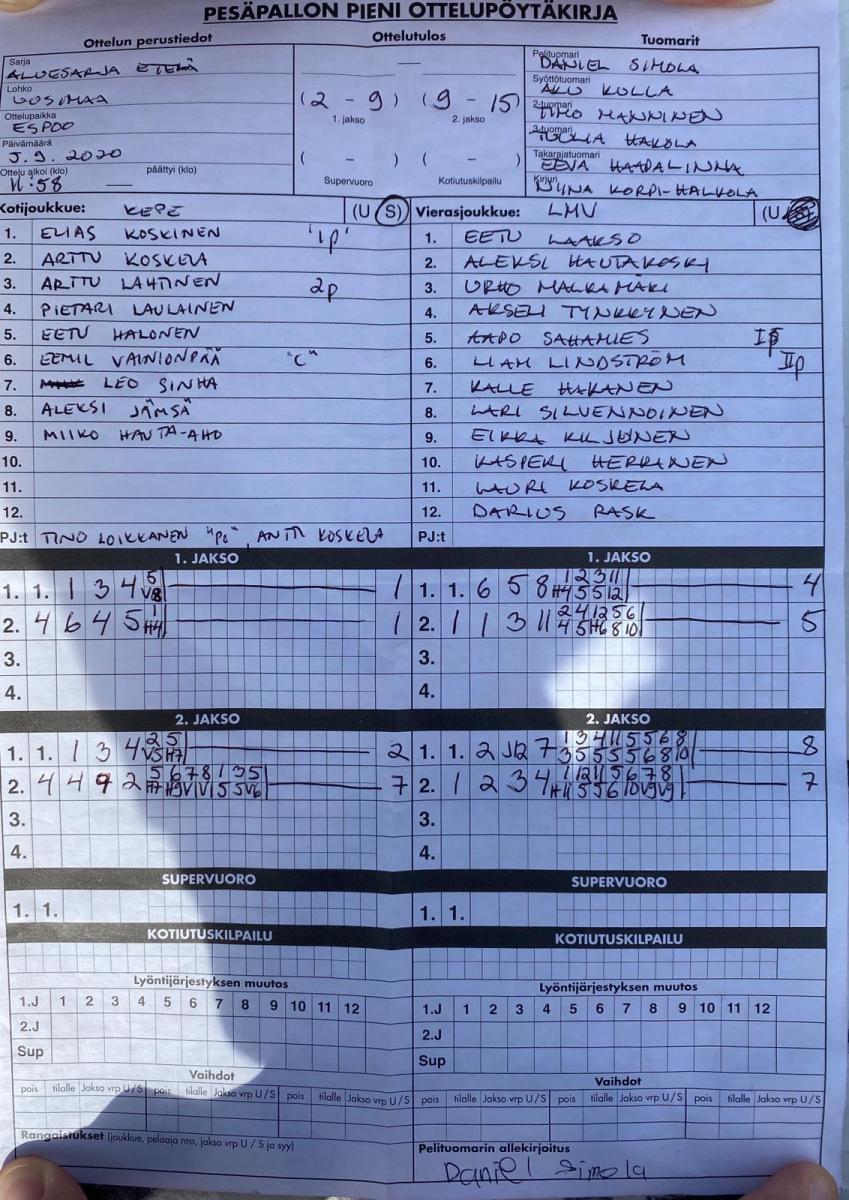 PESÄPALLON PIENI OTTELUPÖYTÄKIRJA
Ottelun perustiedot
Sarja
ALUESARJA ETELÄ
Lohko
UUSIMAA
Ottelupaikka
ESPOO
Päivämäärä
5.9.2020
Ottelu alkoi (klo) päättyi (klo)
11:58 —
Ottelutulos
—
(2 - 9) (9 - 15)
1. jakso 2. jakso
( - ) ( - )
Supervuoro Kotiutuskilpailu
Tuomarit
Pelituomari
DANIEL SIMOLA
Syöttötuomari
AKU KULLA
2-tuomari
TIMO MANNINEN
3-tuomari
TUULIA HAKOLA
Takarajatuomari
EEVA HAAPALINNA
Kirjuri
NIINA KORPI-HALKOLA
Kotijoukkue: KEPE (U S)
1. ELIAS KOSKINEN "1p"
2. ARTTU KOSKELA
3. ARTTU LAHTINEN 2p
4. PIETARI LAULAINEN
5. EETU HALONEN
6. EEMIL VAINIONPÄÄ "C"
7. LEO SINHA
8. ALEKSI JÄMSÄ
9. MIIKO HAUTA-AHO
10.
11.
12.
PJ:t TINO LOIKKANEN "PJ", ANTTI KOSKELA
Vierasjoukkue: LMV (U
1. EETU LAAKSO
2. ALEKSI HAUTAKOSKI
3. URHO MALKAMÄKI
4. AKSELI TYNKKYNEN
5. AAPO SAHAMIES Ip
6. LIAM LINDSTRÖM IIp
7. KALLE HAKANEN
8. LARI SILVENNOINEN
9. EIKKA KILJUNEN
10. KASPERI HERRANEN
11. LAURI KOSKELA
12. DARIUS RASK
PJ:t
1. JAKSO
1. 1. 1 3 4 5 V8 1
2. 4 6 4 5 1 H4 1
3.
4.
1. JAKSO
1. 1. 6 5 8 1 2 3 11 H4 5 5 12 4
2. 1 1 3 11 2 4 12 5 6 4 5 H6 8 10 5
3.
4.
2. JAKSO
1. 1. 1 3 4 2 5 V5 H7 2
2. 4 4 9 2 5 6 7 8 1 3 5 H7 H9 V1 V1 5 5 V6 7
3.
4.
2. JAKSO
1. 1. 2 J12 7 1 3 4 11 5 5 6 8 3 5 5 5 5 6 8 10 8
2. 1 2 3 4 1 12 11 5 6 7 8 H11 5 5 6 10 V9 V9 7
3.
4.
SUPERVUORO
1. 1.
SUPERVUORO
1. 1.
KOTIUTUSKILPAILU
KOTIUTUSKILPAILU
Lyöntijärjestyksen muutos
1.J 1 2 3 4 5 6 7 8 9 10 11 12
2.J
Sup
Lyöntijärjestyksen muutos
1.J 1 2 3 4 5 6 7 8 9 10 11 12
2.J
Sup
Vaihdot
pois tilalle Jakso vrp U/S pois tilalle Jakso vrp U/S pois tilalle Jakso vrp U/S
Vaihdot
pois tilalle Jakso vrp U/S pois tilalle Jakso vrp U/S pois tilalle Jakso vrp U/S
Rangaistukset (joukkue, pelaaja nro, jakso vrp U / S ja syy)
Pelituomarin allekirjoitus
Daniel Simola